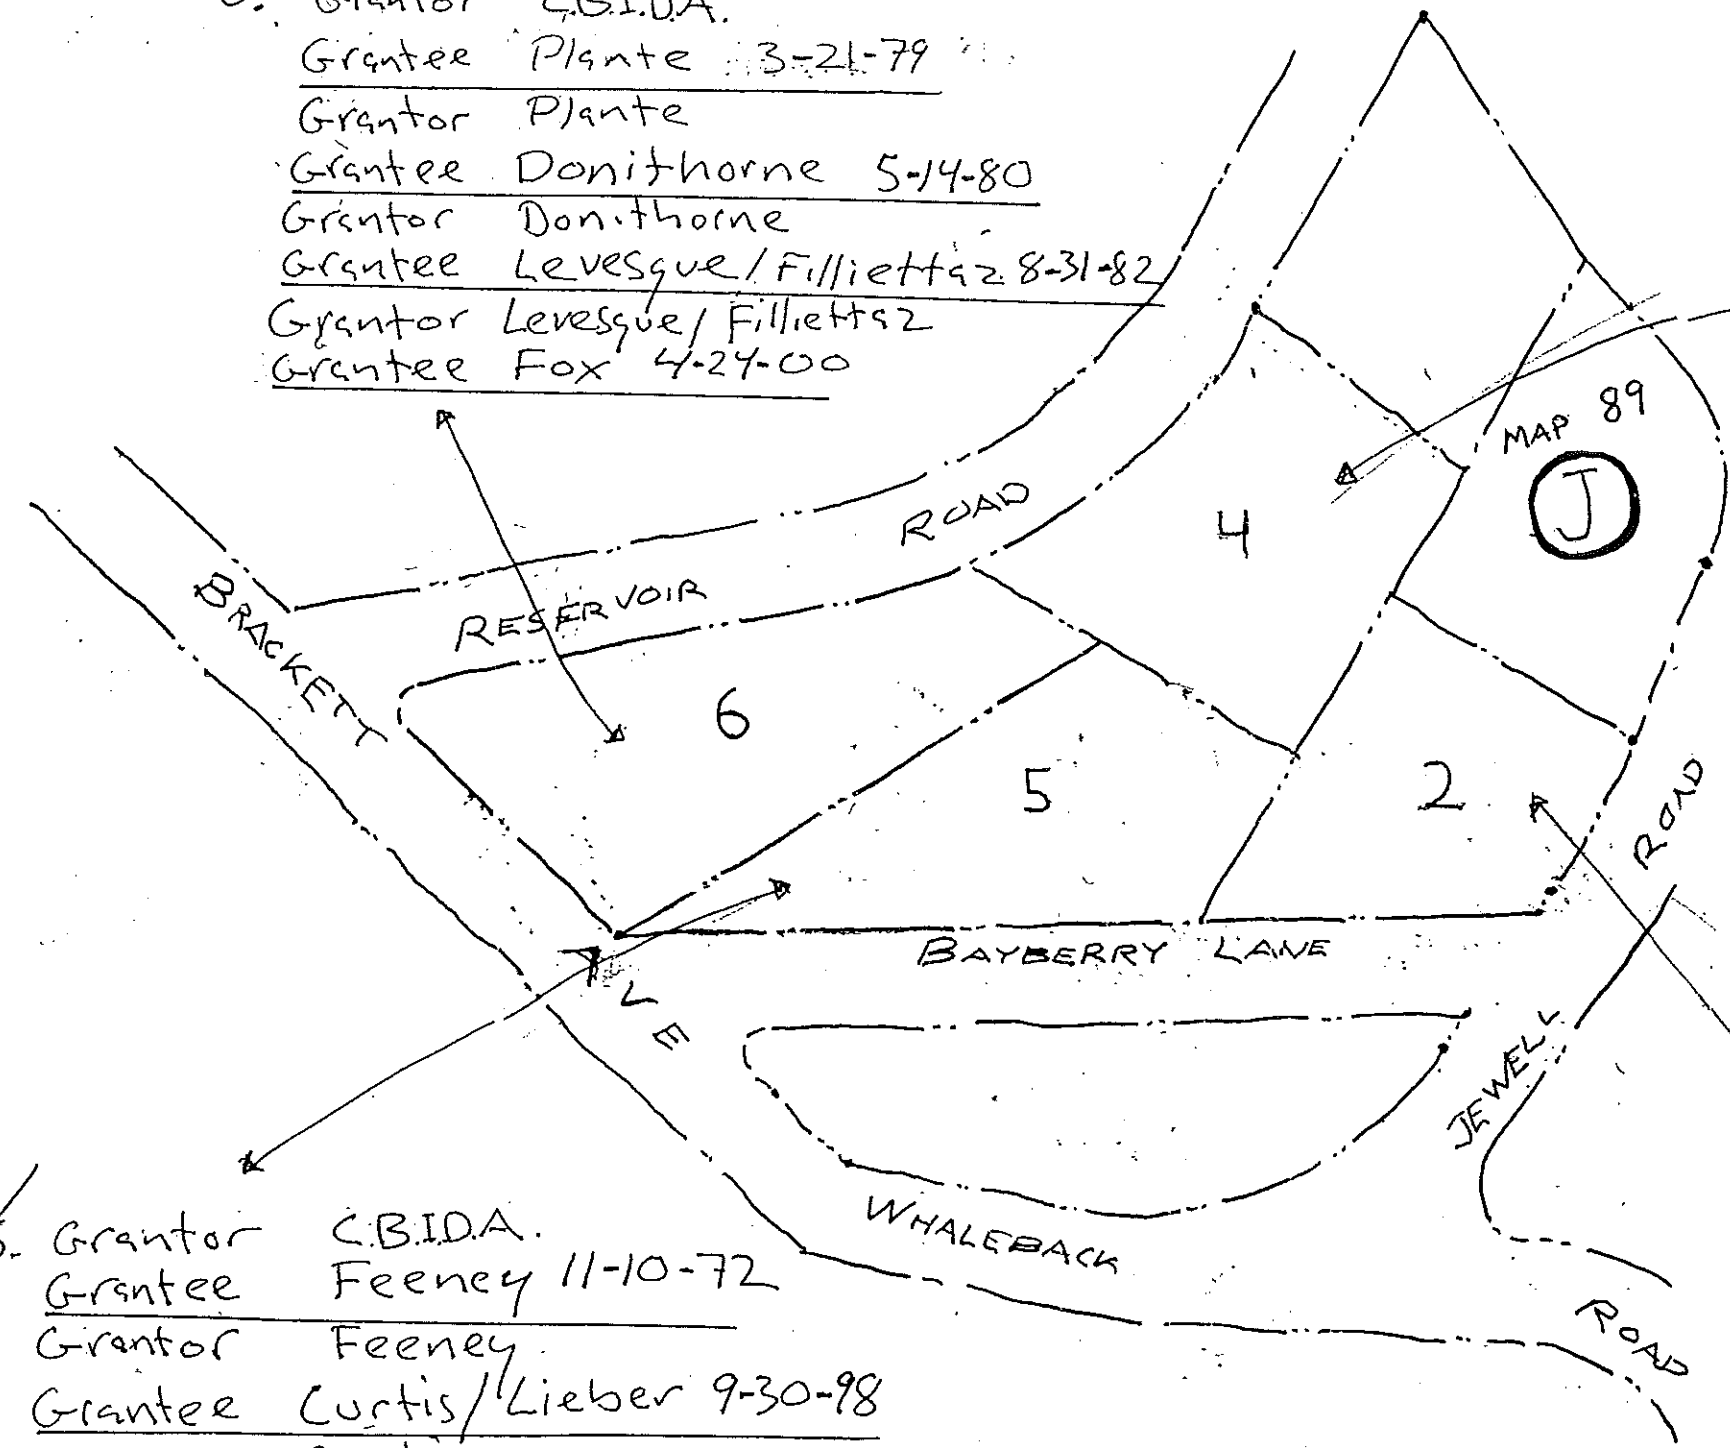 Grantor C.B.I.D.A.
Grantee Plante 3-21-79
Grantor Plante
Grantee Donithorne 5-14-80
Grantor Donithorne
Grantee Levesque/Filliettaz 8-31-82
Grantor Levesque/Filliettaz
Grantee Fox 4-24-00
MAP 89
J
4
RESERVOIR ROAD
BRACKETT
6
5
2
ROAD
BAYBERRY LANE
LE
JEWELL
WHALEBACK
ROAD
5. Grantor C.B.I.D.A.
Grantee Feeney 11-10-72
Grantor Feeney
Grantee Curtis/Lieber 9-30-98